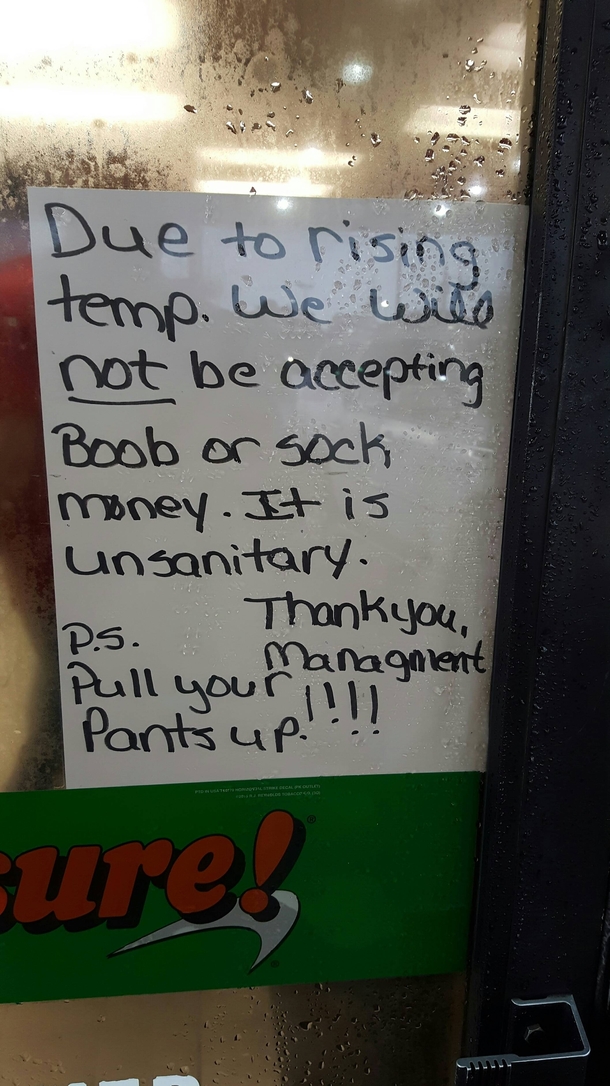 Due to rising
temp. We will
not be accepting
Boob or sock
money. It is
unsanitary.
Thank you,
Managment
P.S.
Pull your
Pants up.!!!!
sure!
®